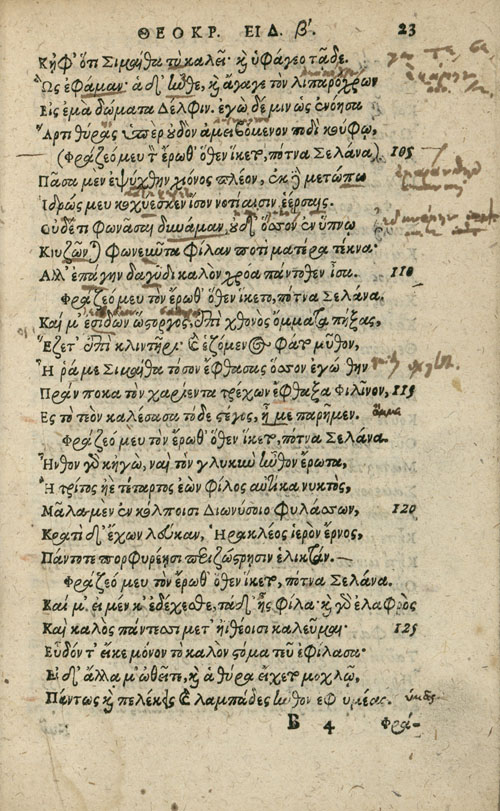 ΘΕΟΚΡ. ΕΙΔ. β'. 23
Κἠφ' ὅτι Σιμαίθα τὺ καλεῖ· κỳ ὑφάγεο τᾷδε.
Ὣς ἐφάμαν· ἁ δ' ἦνθε, κỳ ἄγαγε τὸν λιπαρόχρων
Εἰς ἐμὰ δώματα Δέλφιν. ἐγὼ δέ μιν ὡς ἐνόησα
Ἄρτι θύρας ὑπὲρ οὐδὸν ἀμειβόμενον ποδὶ κούφῳ,
(Φράζεό μευ τ̀ ἔρωθ' ὅθεν ἵκετο, πότνα Σελάνα) 105
Πᾶσα μὲν ἐψύχθην χιόνος πλέον, ἐκ δὲ μετώπω
Ἱδρώς μευ κοχύεσκεν ἴσον νοτίαισιν ἐέρσαις.
Οὐδέ τι φωνᾶσαι δυνάμαν, οὐδ' ὅσσον ἐν ὕπνῳ
Κνυζῶνται φωνεῦντα φίλαν ποτὶ ματέρα τέκνα·
Ἀλλ' ἐπάγην δαγύδι καλὸν χρόα πάντοθεν ἴσα. 110
Φράζεό μευ τὸν ἔρωθ' ὅθεν ἵκετο, πότνα Σελάνα.
Καί μ' ἐσιδὼν ὥστοργος, ἐπὶ χθονὸς ὄμματα πήξας,
Ἕζετ' ἐπὶ κλιντῆρι· & ἑζόμενος φάτο μῦθον,
Ἦ ῥά με Σιμαίθα τόσον ἔφθασας ὅσσον ἐγώ θην
Πρᾶν ποκα τὸν χαρίεντα τρέχων ἔφθαξα Φιλῖνον, 115
Ἐς τὸ τεὸν καλέσασα τόδε στέγος, ἤ με παρῆμεν.
Φράζεό μευ τὸν ἔρωθ' ὅθεν ἵκετο, πότνα Σελάνα.
Ἦνθον γὰρ κἠγὼ, ναὶ τὸν γλυκὺν ἦνθον ἔρωτα,
Ἢ τρίτος ἠὲ τέταρτος ἐὼν φίλος αὐτίκα νυκτὸς,
Μᾶλα μὲν ἐν κόλποισι Διωνύσοιο φυλάσσων, 120
Κρατὶ δ' ἔχων λεύκαν, Ἡρακλέος ἱερὸν ἔρνος,
Πάντοτε πορφυρέῃσι περιζώστρῃσιν ἑλικτάν.
Φράζεό μευ τὸν ἔρωθ' ὅθεν ἵκετο, πότνα Σελάνα.
Καί μ' εἰ μέν κ' ἐδέχεσθε, τάδ' ἦς φίλα· κỳ γὰρ ἐλαφρὸς
Καὶ καλὸς πάντεσσι μετ' ἠϊθέοισι καλεῦμαι· 125
Εὗδόν τ' εἴκε μόνον τὸ καλὸν στόμα τεῦ ἐφίλασα·
Εἰ δ' ἄλλα μ' ὠθεῖτε, κỳ ἁ θύρα εἴχετο μοχλῷ,
Πάντως κỳ πελέκεις & λαμπάδες ἦνθον ἐφ' ὑμέας.
B 4 Φρά-